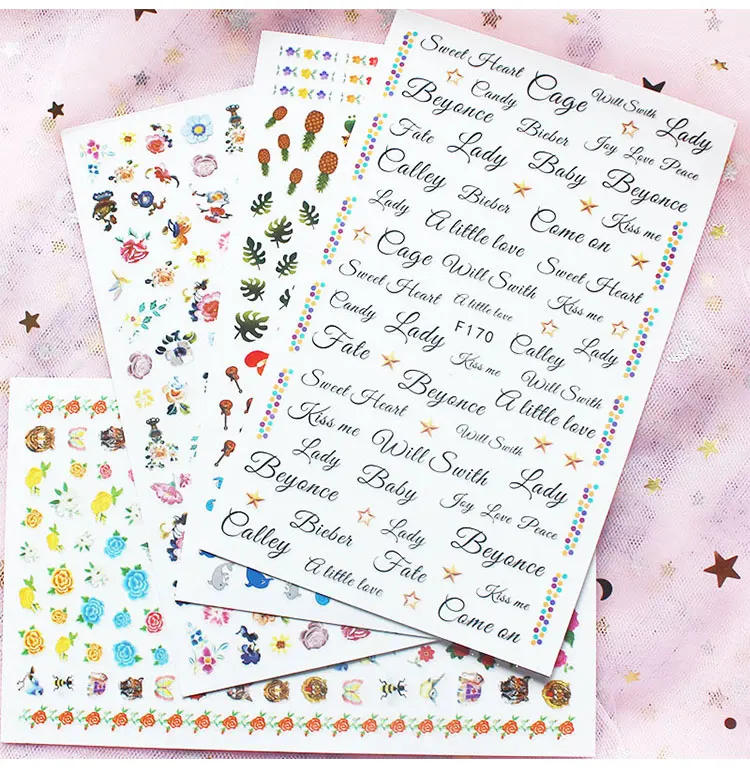 Sweet Heart
Candy Cage Will Swith
Beyonce Bieber Joy Love Peace Lady
Fate Lady Baby Beyonce
Calley Bieber Come on Kiss me
Lady A little love Sweet Heart
Cage Will Swith Kiss me
Sweet Heart A little love
Candy Lady F170 Calley Lady
Fate Kiss me Will Swith
Sweet Heart Beyonce A little love
Kiss me Will Swith Will Swith
Lady Baby Joy Love Peace Lady
Beyonce
Calley Bieber Lady Beyonce
A little love Fate Kiss me
Come on